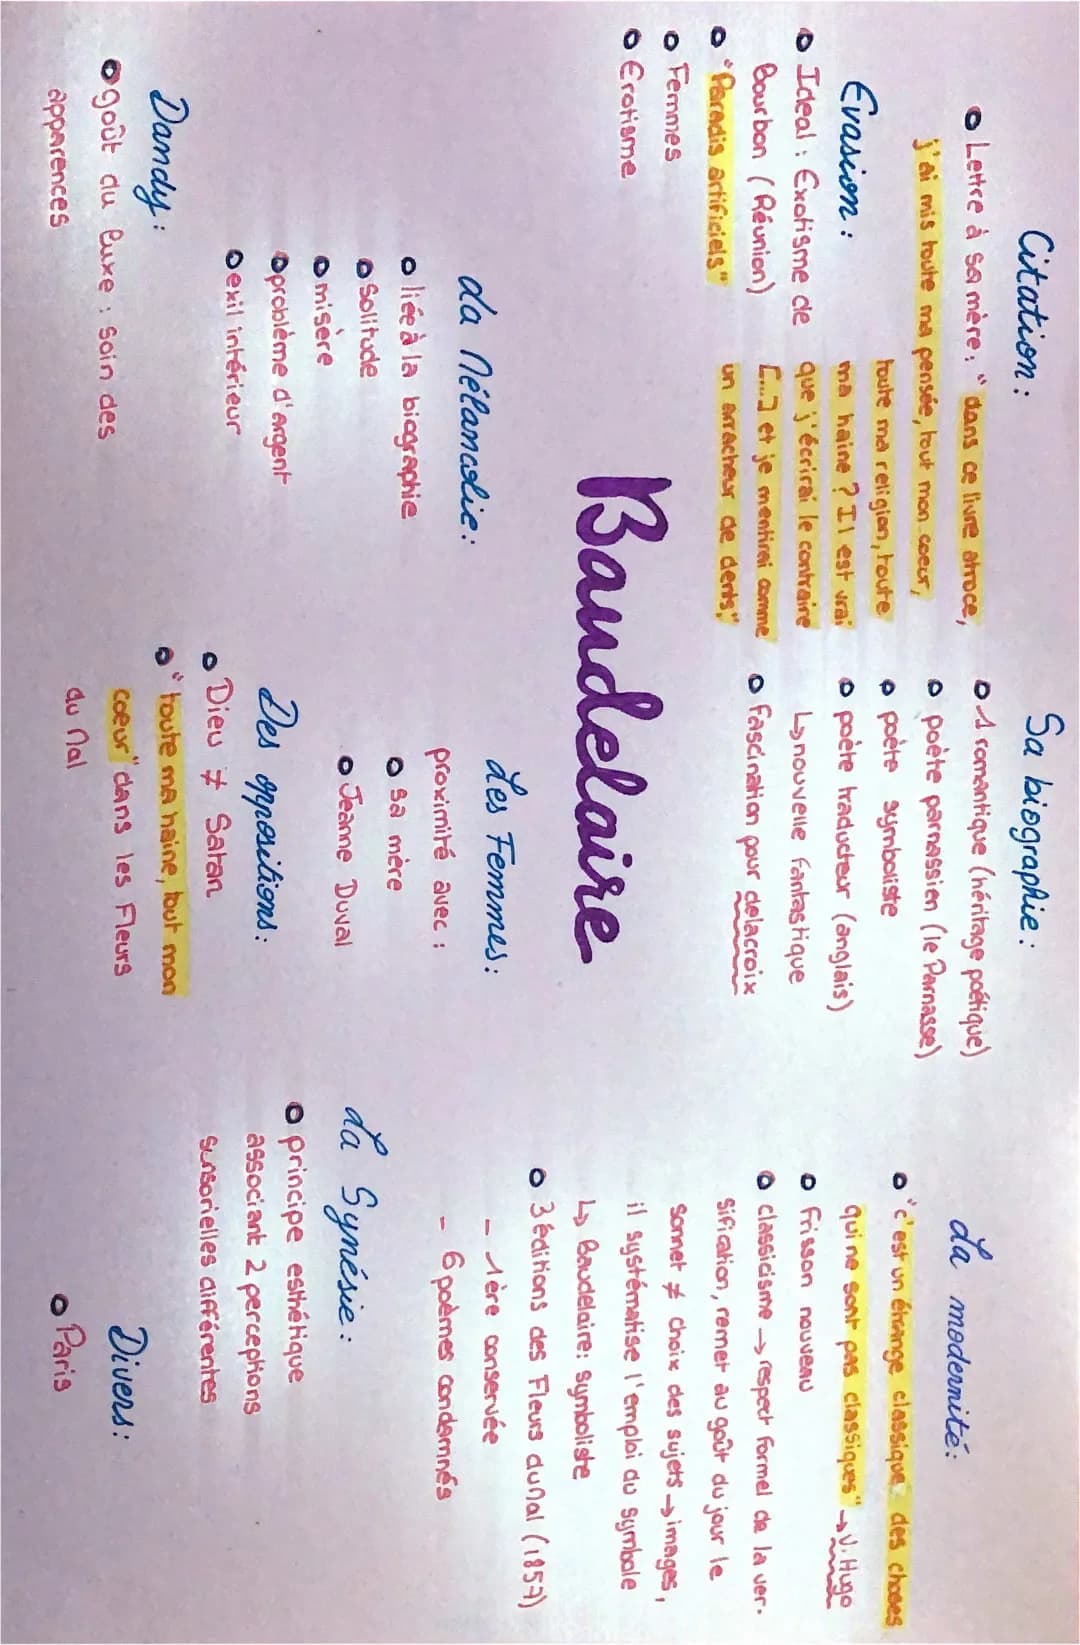 Citation :
o Lettre à sa mère : "dans ce livre atroce,
j'ai mis toute ma pensée, tout mon coeur,
toute ma religion, toute
ma haine ? Il est vrai
que j'écrirai le contraire
[...] et je mentirai comme
un arracheur de dents."
Evasion :
o Ideal : Exotisme de
Bourbon (Réunion)
o "Paradis artificiels"
o Femmes
o Erotisme
Sa biographie :
o 1 romantique (héritage poétique)
o poète parnassien (le Parnasse)
o poète symboliste
o poète traducteur (anglais)
↳ nouvelle fantastique
o fascination pour delacroix
La modernité :
o "c'est un étrange classique des choses
qui ne sont pas classiques" → V. Hugo
o frisson nouveau
o classicisme → respect formel de la ver-
sification, remet au goût du jour le
sonnet ≠ choix des sujets → images,
il systématise l'emploi du symbole
↳ Baudelaire : symboliste
o 3 éditions des Fleurs du Mal (1857)
- 1ère conservée
- 6 poèmes condamnés
Baudelaire
La Mélancolie :
o liée à la biographie
o Solitude
o misère
o problème d'argent
o exil intérieur
Les Femmes :
proximité avec :
o sa mère
o Jeanne Duval
La Synésie :
o principe esthétique
associant 2 perceptions
sensorielles différentes
Dandy :
o goût du luxe : soin des
apparences
Des oppositions :
o Dieu ≠ Satan
o "toute ma haine, tout mon
coeur" dans les Fleurs
du Mal
Divers :
o Paris